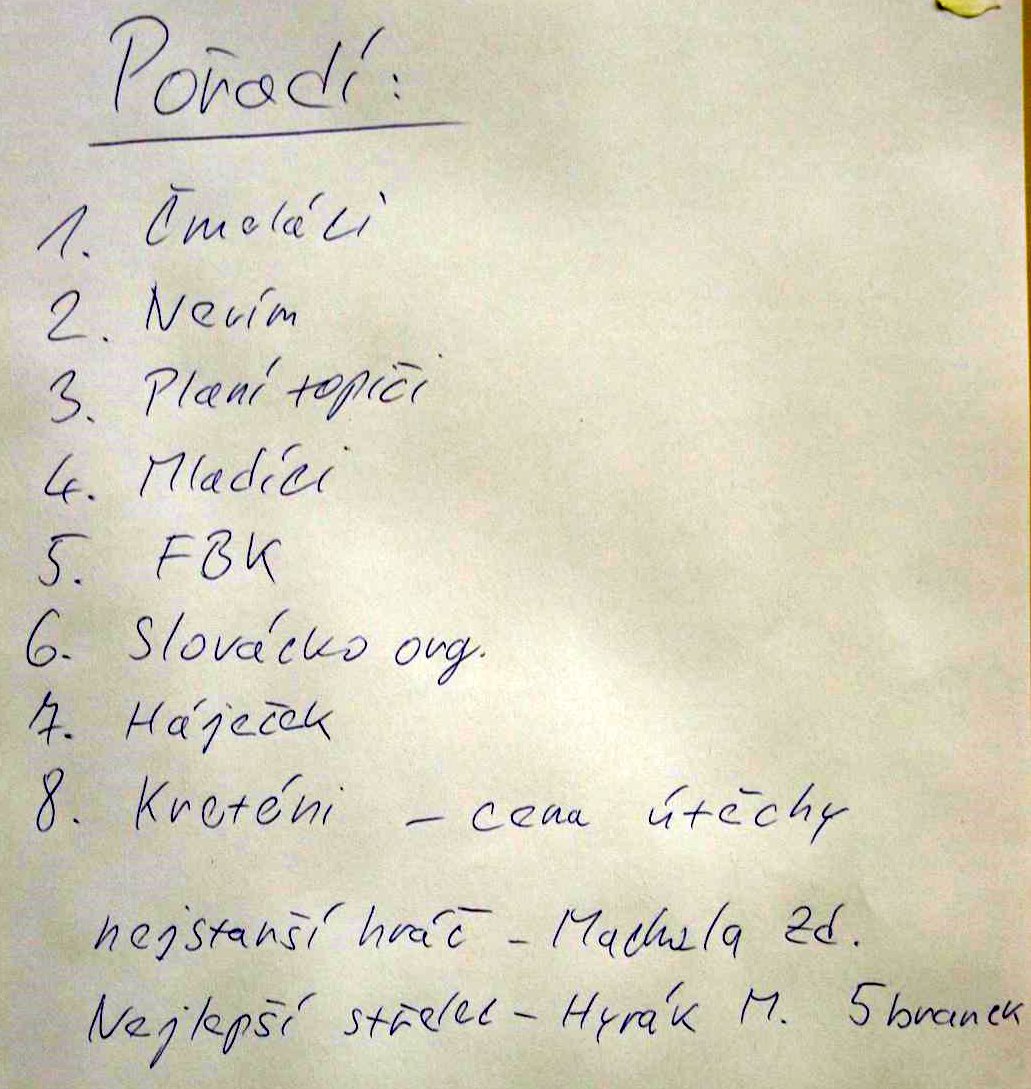 Pořadí:
1. Čmeláci
2. Nevím
3. Planí topiči
4. Mladíci
5. FBK
6. Slovácko org.
7. Háječek
8. Kreténi - cena útěchy
nejstarší hráč - Machala Zd.
Nejlepší střelec - Hyrák M. 5 branek